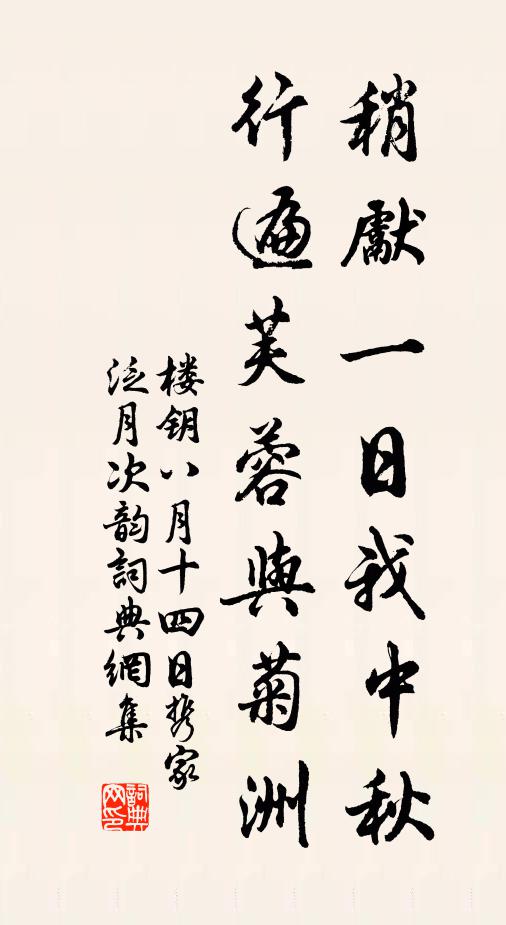 稍獻一日我中秋
行遍芙蓉與菊洲
楼钥八月十四日携家
泛月次韵詞典網集
詞典
网印